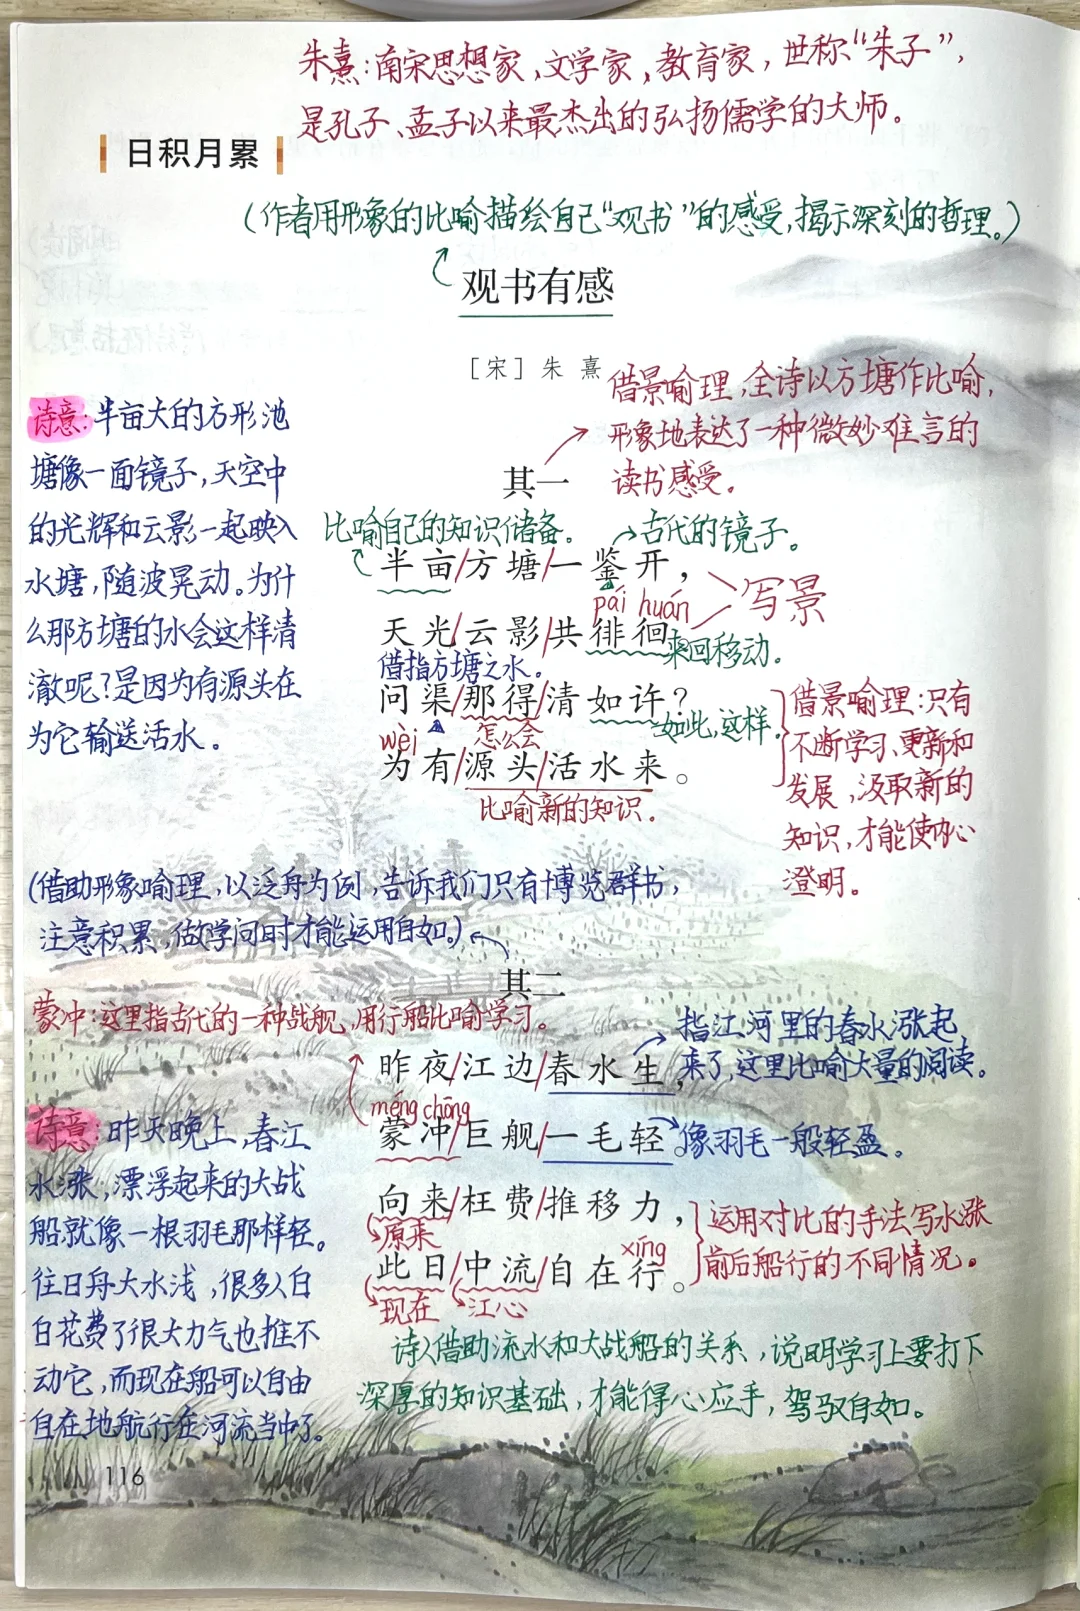 朱熹:南宋思想家、文学家,教育家,世称“朱子”,
是孔子、孟子以来最杰出的弘扬儒学的大师。
日积月累
(作者用形象的比喻描绘自己“观书”的感受,揭示深刻的哲理。)
观书有感
[宋] 朱熹
借景喻理,全诗以方塘作比喻,
形象地表达了一种微妙难言的
读书感受。
其一
诗意:半亩大的方形池
塘像一面镜子,天空中
的光辉和云影一起映入
水塘,随波晃动。为什
么那方塘的水会这样清
澈呢?是因为有源头在
为它输送活水。
比喻自己的知识储备。
古代的镜子。
半亩/方塘/一鉴开,
pái huán
写景
天光/云影/共徘徊
来回移动。
借指方塘之水。
问渠/那得/清如许?
如此,这样。
wèi
怎么会
为有/源头/活水来。
比喻新的知识。
借景喻理:只有
不断学习、更新和
发展,汲取新的
知识,才能使内心
澄明。
(借助形象喻理,以泛舟为例,告诉我们只有博览群书,
注意积累,做学问时才能运用自如。)
其二
蒙冲:这里指古代的一种战舰,用行船比喻学习。
指江河里的春水涨起
来了,这里比喻大量的阅读。
昨夜/江边/春水生,
méng chōng
蒙冲/巨舰/一毛轻。
像羽毛一般轻盈。
向来/枉费/推移力,
原来
xíng
此日/中流/自在行。
现在
江心
运用对比的手法写水涨
前后船行的不同情况。
诗意:昨天晚上,春江
水涨,漂浮起来的大战
船就像一根羽毛那样轻。
往日舟大水浅,很多人白
白花费了很大力气也推不
动它,而现在船可以自由
自在地航行在河流当中了。
诗人借助流水和大战船的关系,说明学习上要打下
深厚的知识基础,才能得心应手,驾驭自如。
116